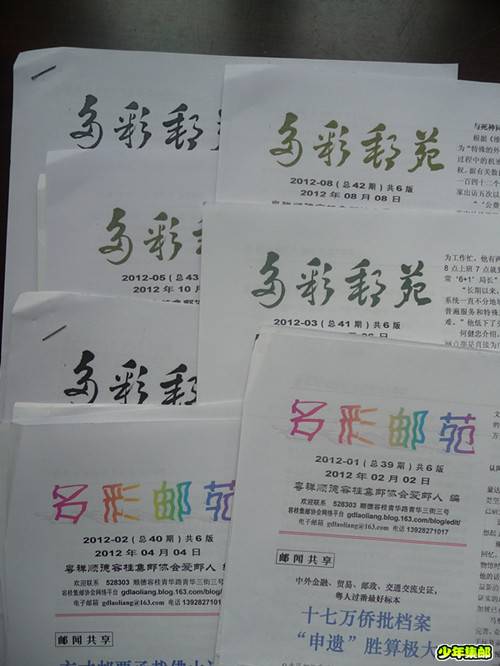 多彩邮苑
多彩郵苑
2012-08 (总42期) 共6版
2012 年 08 月 08 日
与死神
根据《维
为“特殊的外
过程中的机密
权。据有关数
一百四十二个
家出访五次以
“公费
多彩
2012-05 (总43
2012 年 10 月
多彩郵苑
2012-03 (总41期) 共6版
为工作忙。他有两
8 点上班 7 点就
常“6+1’局长”
“长期以来，
系统一直不分地
普遍服务和特殊
难。”他低下了
何健忠介绍，
多彩郵
多彩邮苑
2012-02 (总40期) 共6版
2012 年 04 月 04 日
粤禅顺德容桂集邮协会爱邮人 编
欢迎联系 528303 顺德容桂青华路青华三街三号
容桂集邮协会网络平台 gdlaoliang.blog.163.com/blog/edit/
电子邮箱 gdlaoliang@163.com 电话 13928271017
邮闻共享
多彩邮苑
2012-01 (总39期) 共6版
2012 年 02 月 02 日
粤禅顺德容桂集邮协会爱邮人 编
欢迎联系 528303 顺德容桂青华路青华三街三号
容桂集邮协会网络平台 gdlaoliang.blog.163.com/blog/edit/
电子邮箱 gdlaoliang@163.com 电话 13928271017
邮闻共享
中外金融、贸易、邮政、交通交流史证，
粤人过番最好标本
十七万侨批档案
“申遗”胜算极大
少年集邮